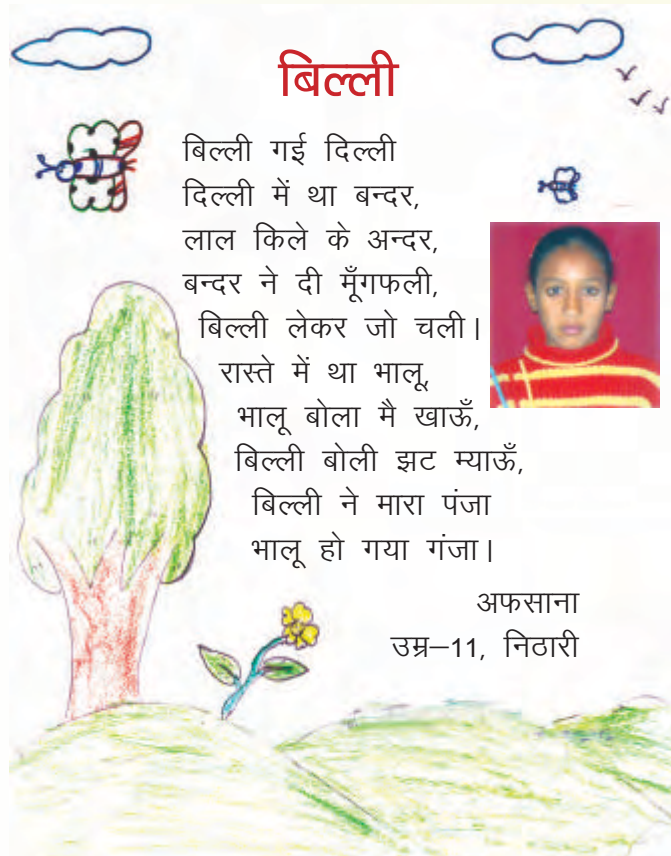 बिल्ली
बिल्ली गई दिल्ली
दिल्ली में था बन्दर,
लाल किले के अन्दर,
बन्दर ने दी मूँगफली,
बिल्ली लेकर जो चली।
रास्ते में था भालू,
भालू बोला मै खाऊँ,
बिल्ली बोली झट म्याऊँ,
बिल्ली ने मारा पंजा
भालू हो गया गंजा।
अफसाना
उम्र–11, निठारी